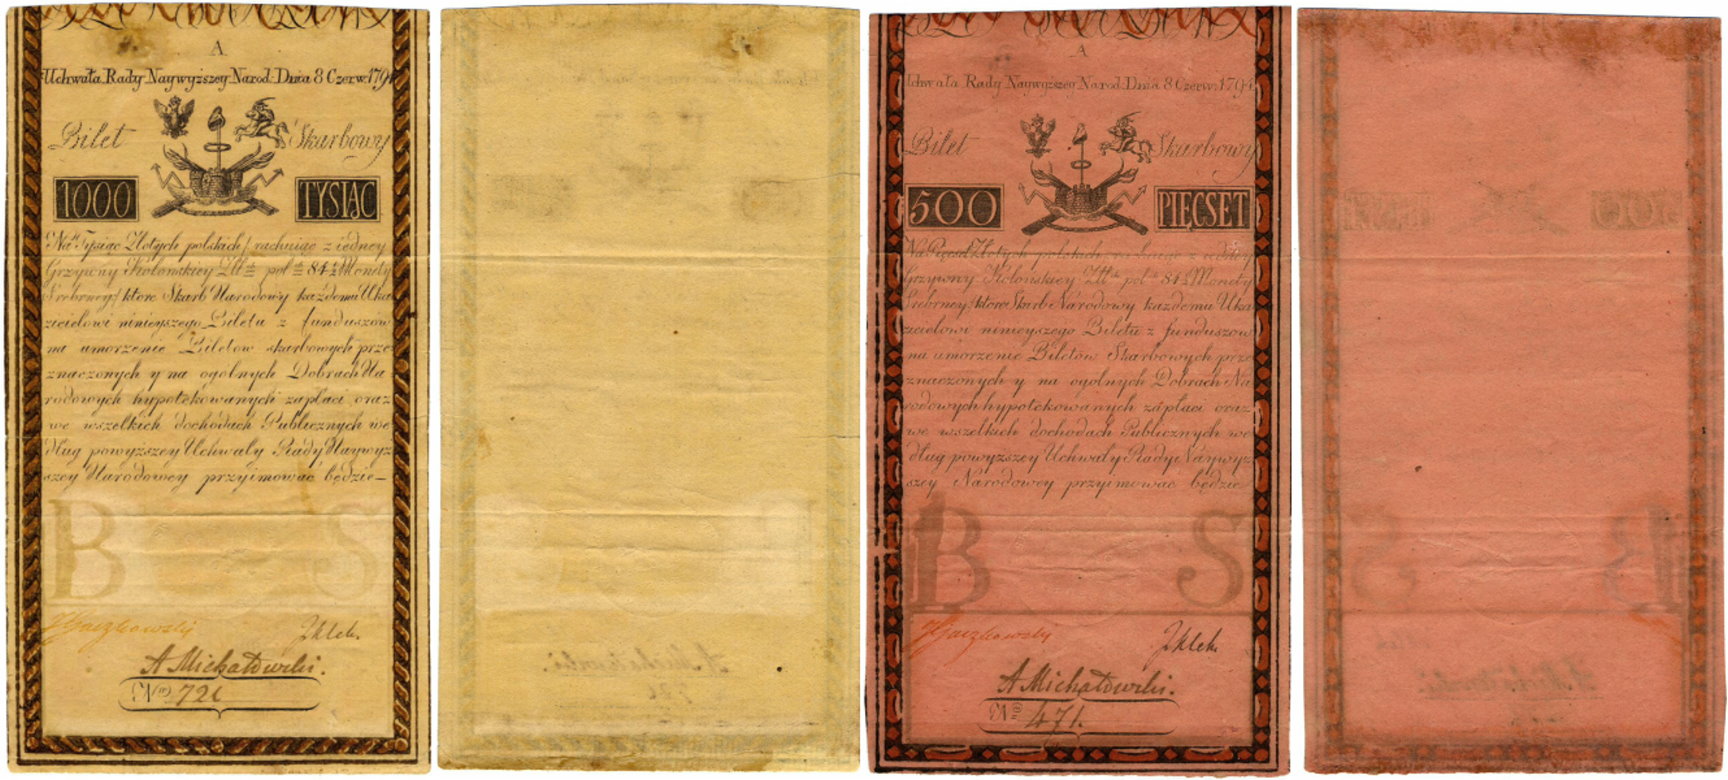 A.
Uchwała Rady Naywyższey Narod: Dnia 8 Czerw: 1794
Bilet Skarbowy
1000 TYSIĄC
Na Tysiąc Złotych polskich / rachuiąc z iedney
Grzywny Kolonskiey Złł pol 84½ Monety
Srebrney / ktore Skarb Narodowy każdemu Uka
zicielowi ninieyszego Biletu z funduszow
na umorzenie Biletow skarbowych prze
znaczonych y na ogolnych Dobrach Na
rodowych hypotekowanych zapłaci oraz
we wszelkich dochodach Publicznych we
dług powyższey Uchwały Rady Naywyz
szey Narodowey przyimować będzie
B S
JGaczkowski JKlek.
A Michałowski.
N 726
A
Uchwała Rady Naywyższey Narod: Dnia 8 Czerw: 1794
Bilet Skarbowy
500 PIĘCSET
Na Pięcset Złotych polskich, rachuiąc z iedney
Grzywny Kolonskiey Złł pol 84½ Monety
Srebrney, ktore Skarb Narodowy każdemu Uka
zicielowi ninieyszego Biletu z funduszow
na umorzenie Biletów Skarbowych prze
znaczonych y na ogolnych Dobrach Na
rodowych hypotekowanych zápłaci oraz
we wszelkich dochodach Publicznych we
dług powyższey Uchwały Rady Naywyz
szey Narodowey przyimowac będzie
B S
JGaczkowski JKlek
A Michałowski.
N 471.